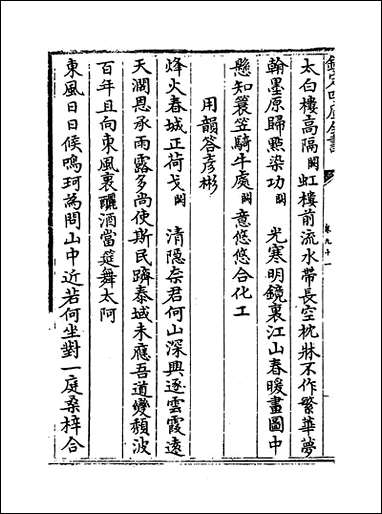 欽定四庫全書
卷九十一
太白樓高隔闕虹樓前流水帶長空枕牀不作繁華夢
翰墨原歸㸃染功闕光寒明鏡裏江山春暖畫圖中
懸知簑笠騎牛處闕意悠悠合化工
用韻答彦彬
烽火春城正荷戈闕清隱奈君何山深興逐雲霞逺
天濶恩承雨露多尚使斯民躋泰域未應吾道變頽波
百年且向東風裏釃酒當筵舞太阿
東風日日候鳴珂為問山中近若何坐對一庭桑梓合